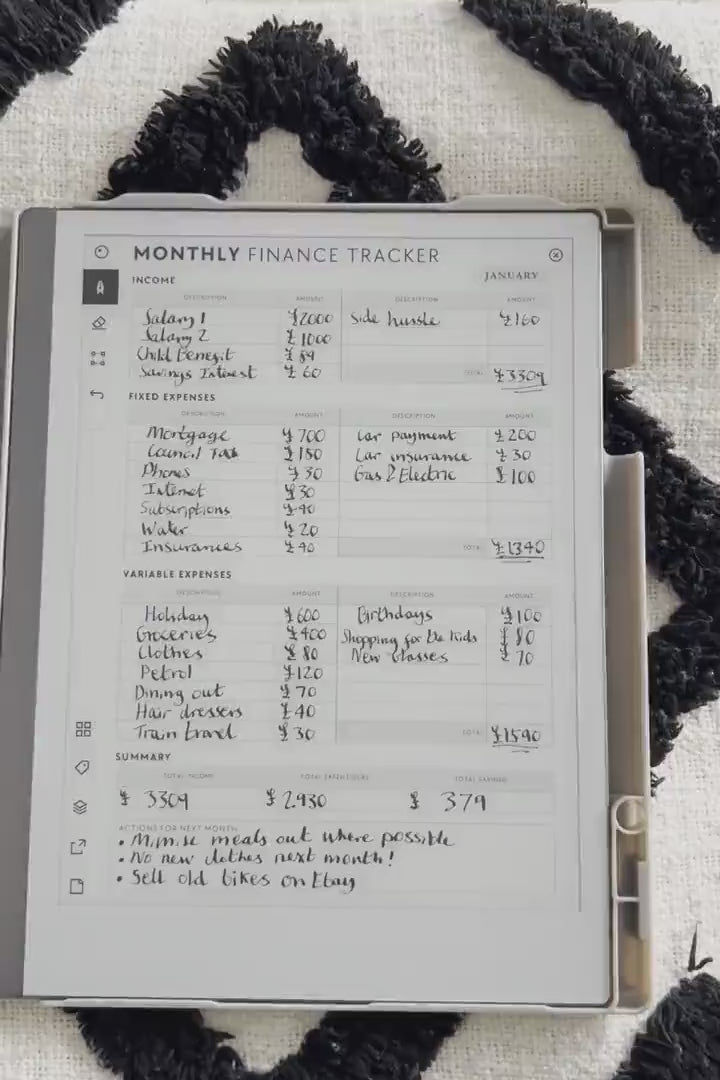 MONTHLY FINANCE TRACKER
JANUARY
INCOME
DESCRIPTION AMOUNT DESCRIPTION AMOUNT
Salary 1 £2000 Side hussle £160
Salary 2 £1000
Child Benefit £89
Savings Interest £60 TOTAL £3309
FIXED EXPENSES
DESCRIPTION AMOUNT DESCRIPTION AMOUNT
Mortgage £700 Car payment £200
Council Tax £150 Car insurance £30
Phones £30 Gas & Electric £100
Internet £30
Subscriptions £40
Water £20
Insurances £40 TOTAL £1340
VARIABLE EXPENSES
DESCRIPTION AMOUNT DESCRIPTION AMOUNT
Holiday £600 Birthdays £100
Groceries £400 Shopping for the kids £80
Clothes £80 New Glasses £70
Petrol £120
Dining out £70
Hair dressers £40
Train travel £30 TOTAL £1590
SUMMARY
TOTAL INCOME TOTAL EXPENSES TOTAL SAVINGS
£ 3309 £ 2930 £ 379
ACTIONS FOR NEXT MONTH
• Minimise meals out where possible
• No new clothes next month!
• Sell old bikes on Ebay